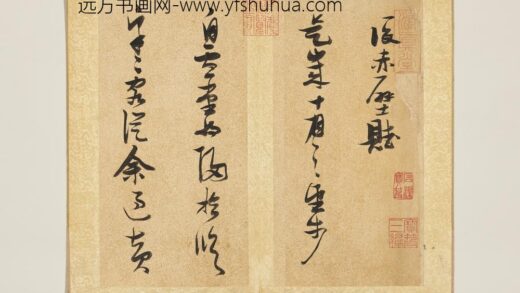 远方书画网-www.yfshuhua.com
後赤壁賦
是歲十月之望步
自雪堂將歸於臨
皋二客從余過黃